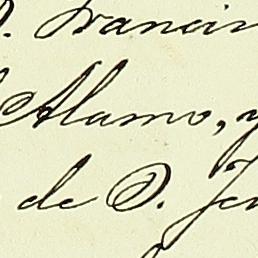 D. Francis
Alamo, y
de D. Je